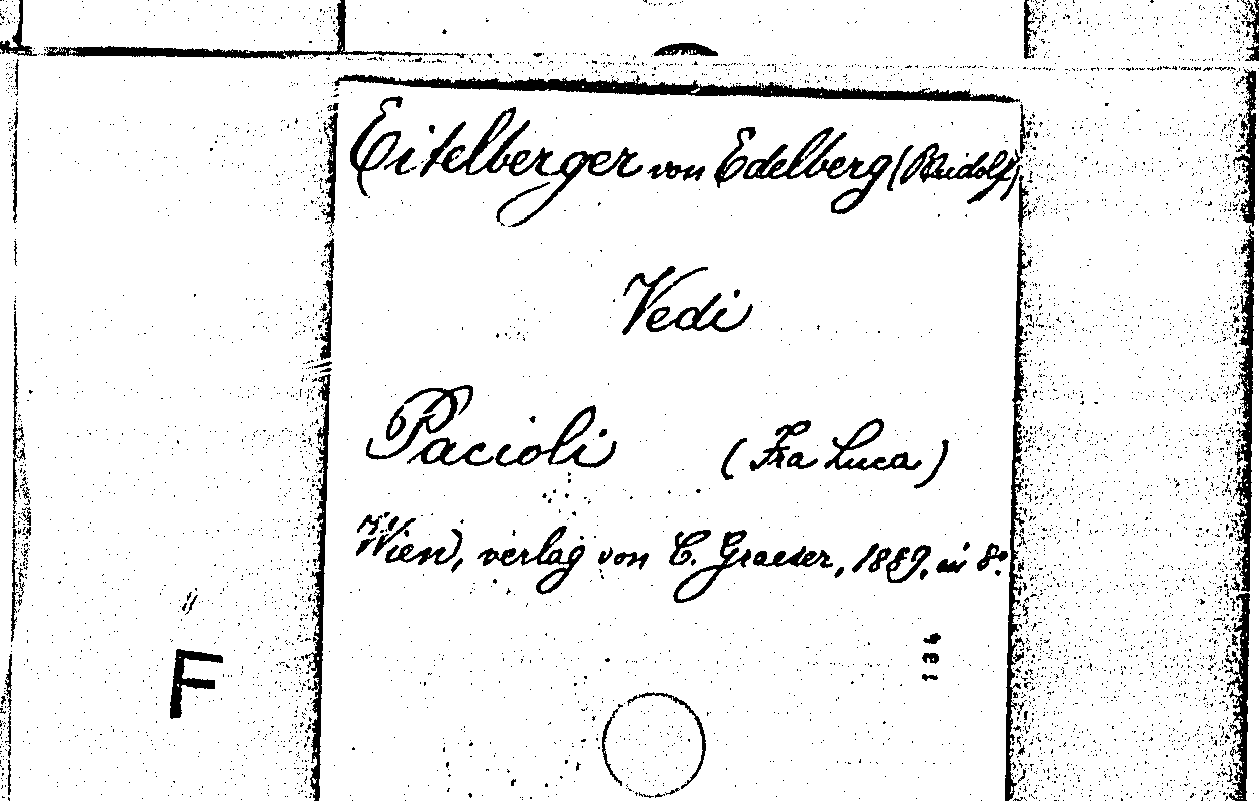 Eitelberger von Edelberg (Rudolf)
Vedi
Pacioli (Fra Luca)
Wien, verlag von C. Graeser, 1889, in 8º.
134
F